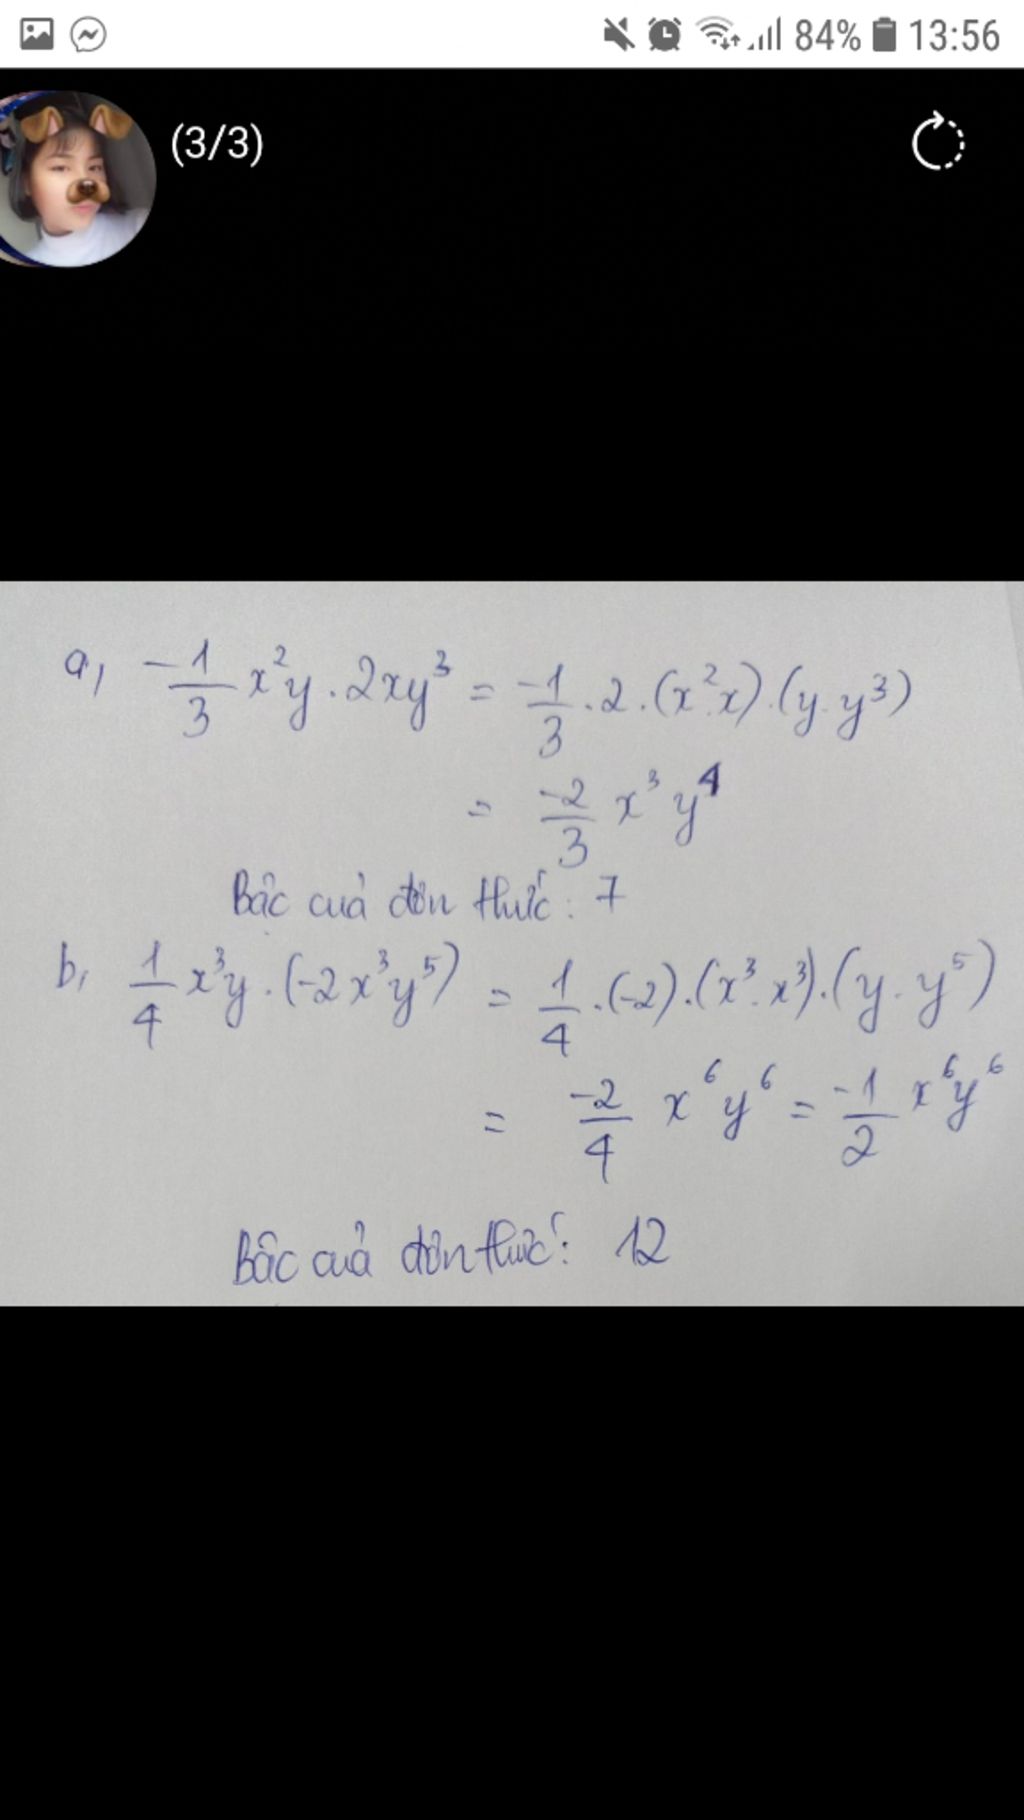 84% 13:56
(3/3)
a, -1/3 x²y . 2xy³ = -1/3 . 2 . (x².x) . (y.y³)
= -2/3 x³y⁴
Bậc cuả đơn thức : 7
b, 1/4 x³y . (-2x³y⁵) = 1/4 . (-2) . (x³.x³) . (y.y⁵)
= -2/4 x⁶y⁶ = -1/2 x⁶y⁶
Bậc cuả đơn thức : 12